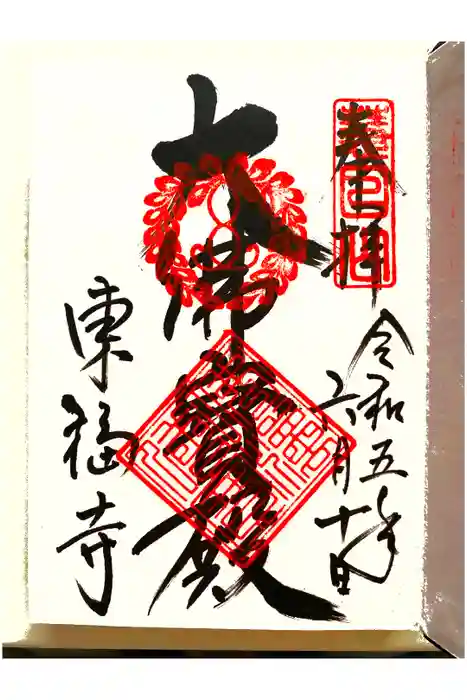 奉拝
令和五年
六月十日
大佛寳殿
東福寺